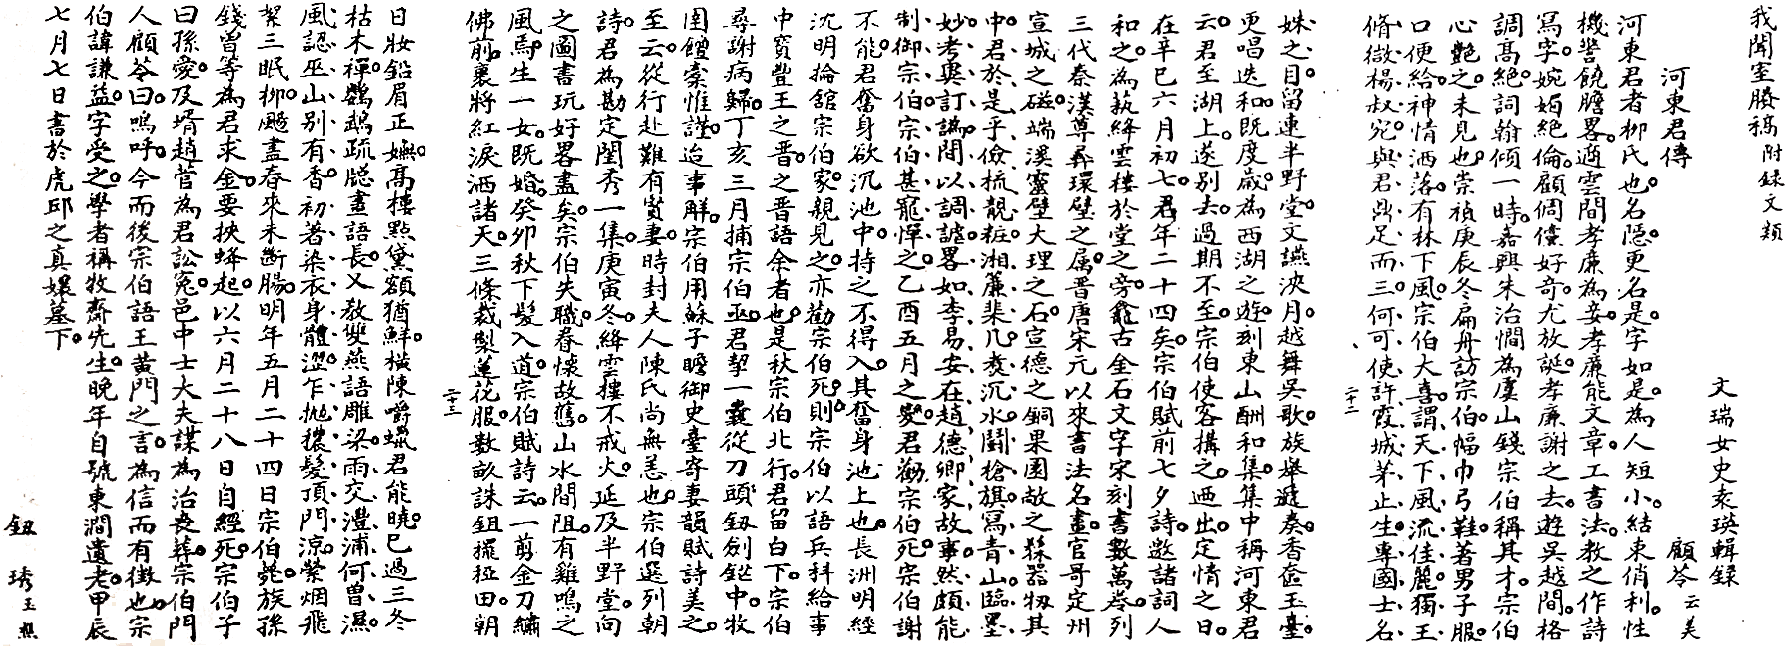 我聞室賸稿 附録文類
文瑞女史袁瑛輯錄
河東君傳
顧苓 云美
河東君者柳氏也名隠更名是字如是為人短小結束俏利性
機警饒膽畧適雲間孝廉為妾孝廉能文章工書法教之作詩
冩字婉媚絶倫顧倜儻好奇尤放誕孝廉謝之去遊吳越間格
調高絶詞翰傾一時嘉興朱治憪為虞山錢宗伯稱其才宗伯
心艶之未見也崇禎庚辰冬扁舟訪宗伯幅巾弓鞋著男子服
口便給神情洒落有林下風宗伯大喜謂天下風流佳麗獨王
脩微楊叔宛與君鼎足而三何可使許霞城茅止生專國士名
二十二
姝之目留連半野堂文讌浹月越舞吳歌族舉遞奏香奩玉臺
更唱迭和既度歲為西湖之遊刻東山酬和集集中稱河東君
云君至湖上遂別去過期不至宗伯使客搆之迺出定情之日
在辛巳六月初七君年二十四矣宗伯賦前七夕詩邀諸詞人
和之為蓺絳雲樓於堂之旁龕古金石文字宋刻書數萬卷列
三代秦漢尊彝環璧之属晋唐宋元以來書法名畫官哥定州
宣城之磁端溪靈璧大理之石宣德之銅果園敝之髹器物其
中君於是乎儉梳靚粧湘簾棐几煑沉水鬪槍旗冩青山臨墨
妙考異訂譌間以調謔畧如李易安在趙德卿家故事然頗能
制御宗伯宗伯甚寵憚之乙酉五月之變君勸宗伯死宗伯謝
不能君奮身欲沉池中持之不得入其奮身池上也長洲明經
沈明掄舘宗伯家親見之亦勸宗伯死則宗伯以語兵科給事
中寳豐王之晋之晋語余者也是秋宗伯北行君留白下宗伯
尋謝病歸丁亥三月捕宗伯亟君挈一囊從刀頭劔鋩中牧
圉饘槖惟謹迨事觧宗伯用蘇子瞻御史臺寄妻韻賦詩美之
至云從行赴難有賢妻時封夫人陳氏尚無恙也宗伯選列朝
詩君為勘定閨秀一集庚寅冬絳雲摟不戒火延及半野堂向
之圖書玩好畧盡矣宗伯失職眷懷故舊山水間阻有雞鳴之
風焉生一女既婚癸卯秋下髮入道宗伯賦詩云一剪金刀繡
佛前裹將紅淚洒諸天三條裁製蓮花服數畝誅鉏䆉稏田朝
二十三
日妝鉛眉正嫵高樓點黛額猶鮮橫陳嚼蠟君能曉已過三冬
枯木禪鸚鵡疏牕晝語長又教雙燕語雕梁雨交灃浦何曽濕
風認巫山别有香初著染衣身體澀乍抛穠髪頂門涼縈烟飛
絮三眠柳颺盡春來未斷腸明年五月二十四日宗伯薨族孫
錢曽等為君求金要挾蜂起以六月二十八日自經死宗伯子
曰孫愛及壻趙菅為君訟冤邑中士大夫謀為治喪葬宗伯門
人顧苓曰嗚呼今而後宗伯語王黃門之言為信而有徴也宗
伯諱謙益字受之學者稱牧齋先生晚年自號東澗遺老甲辰
七月七日書於虎邱之真娘墓下